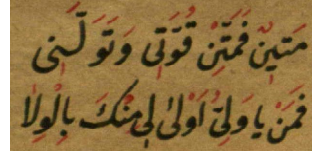 مَتِينٌ فَمَتِّنْ قُوَّتِى وَتَوَلَّنِى
فَمَنْ يَا وَلِىُّ اَوْلٰى لِى مِنْكَ بِالْوِلَا